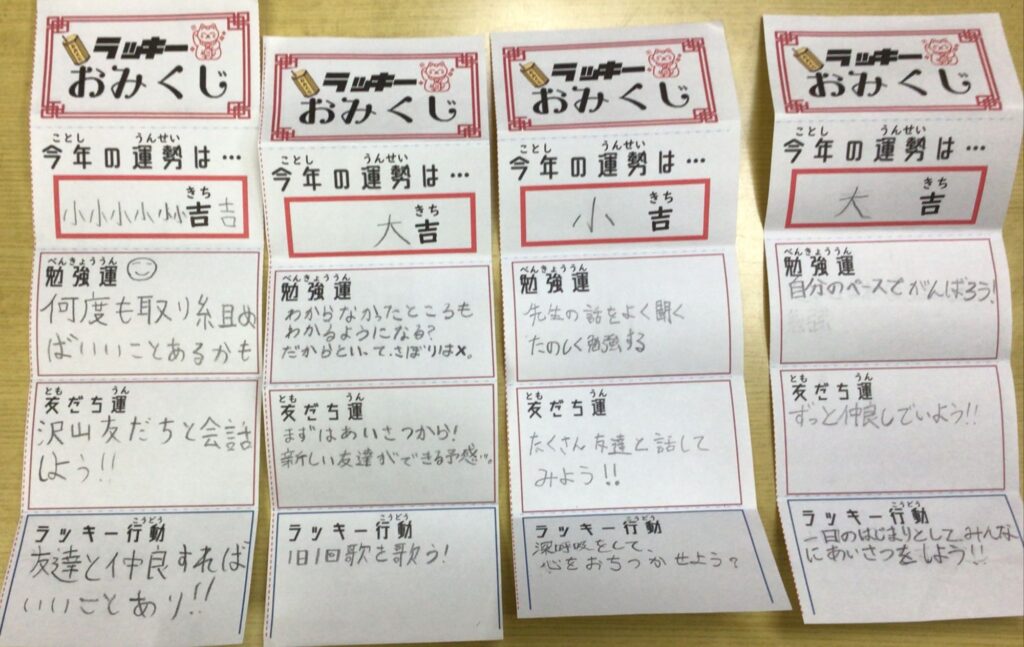 ラッキー
おみくじ
ことし うんせい
今年の運勢は…
きち
小小小小小小吉吉
べんきょううん
勉強運
何度も取り組め
ばいいことあるかも
とも うん
友だち運
沢山友だちと会話
しよう!!
こうどう
ラッキー行動
友達と仲良すれば
いいことあり!!
ラッキー
おみくじ
ことし うんせい
今年の運勢は…
きち
大吉
べんきょううん
勉強運
わからなかったところも
わかるようになる?
だからといって、さぼりは×。
とも うん
友だち運
まずはあいさつから!
新しい友達ができる予感…。
こうどう
ラッキー行動
1日1回歌を歌う!
ラッキー
おみくじ
ことし うんせい
今年の運勢は…
きち
小吉
べんきょううん
勉強運
先生の話をよく聞く
たのしく勉強する
とも うん
友だち運
たくさん友達と話して
みよう!!
こうどう
ラッキー行動
深呼吸をして、
心をおちつかせよう?
ラッキー
おみくじ
ことし うんせい
今年の運勢は…
きち
大吉
べんきょううん
勉強運
自分のペースでがんばろう!
とも うん
友だち運
ずっと仲良しでいよう!!
こうどう
ラッキー行動
一日のはじまりとして、みんな
にあいさつをしよう!!